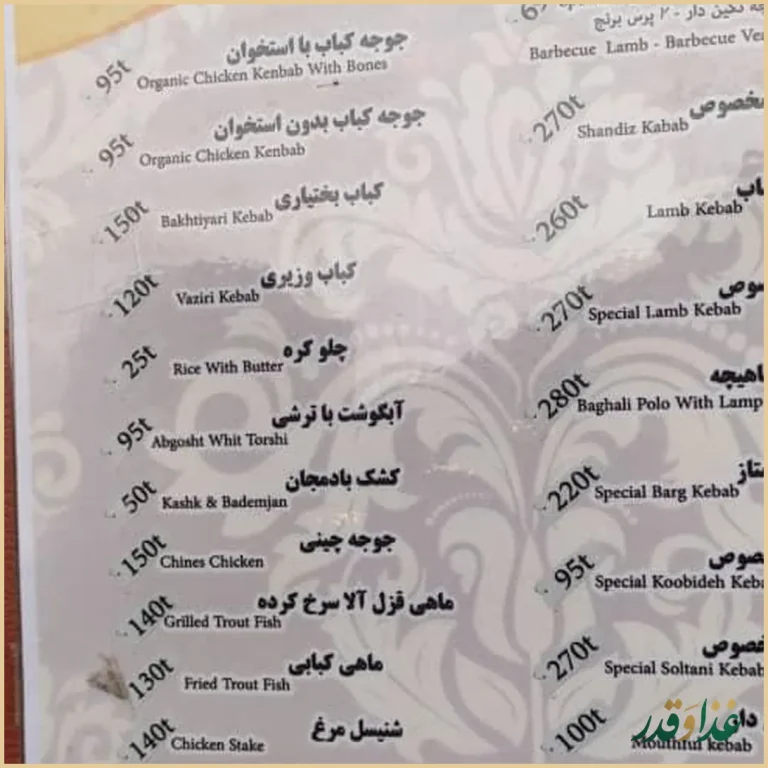 جوجه کباب با استخوان
95t Organic Chicken Kenbab With Bones
جوجه کباب بدون استخوان
95t Organic Chicken Kenbab
کباب بختیاری
150t Bakhtiyari Kebab
کباب وزیری
120t Vaziri Kebab
چلو کره
25t Rice With Butter
آبگوشت با ترشی
95t Abgosht Whit Torshi
کشک بادمجان
50t Kashk & Bademjan
جوجه چینی
150t Chines Chicken
ماهی قزل آلا سرخ کرده
140t Grilled Trout Fish
ماهی کبابی
130t Fried Trout Fish
شنیسل مرغ
140t Chicken Stake
نگین دار - ۲ پرس برنج
Barbecue Lamb - Barbecue
مخصوص
270t Shandiz Kabab
260t Lamb Kebab
270t Special Lamb Kebab
280t Baghali Polo With Lamp
220t Special Barg Kebab
95t Special Koobideh
270t Special Soltani Kebab
100t Mouthful kebab
غذا و قدر